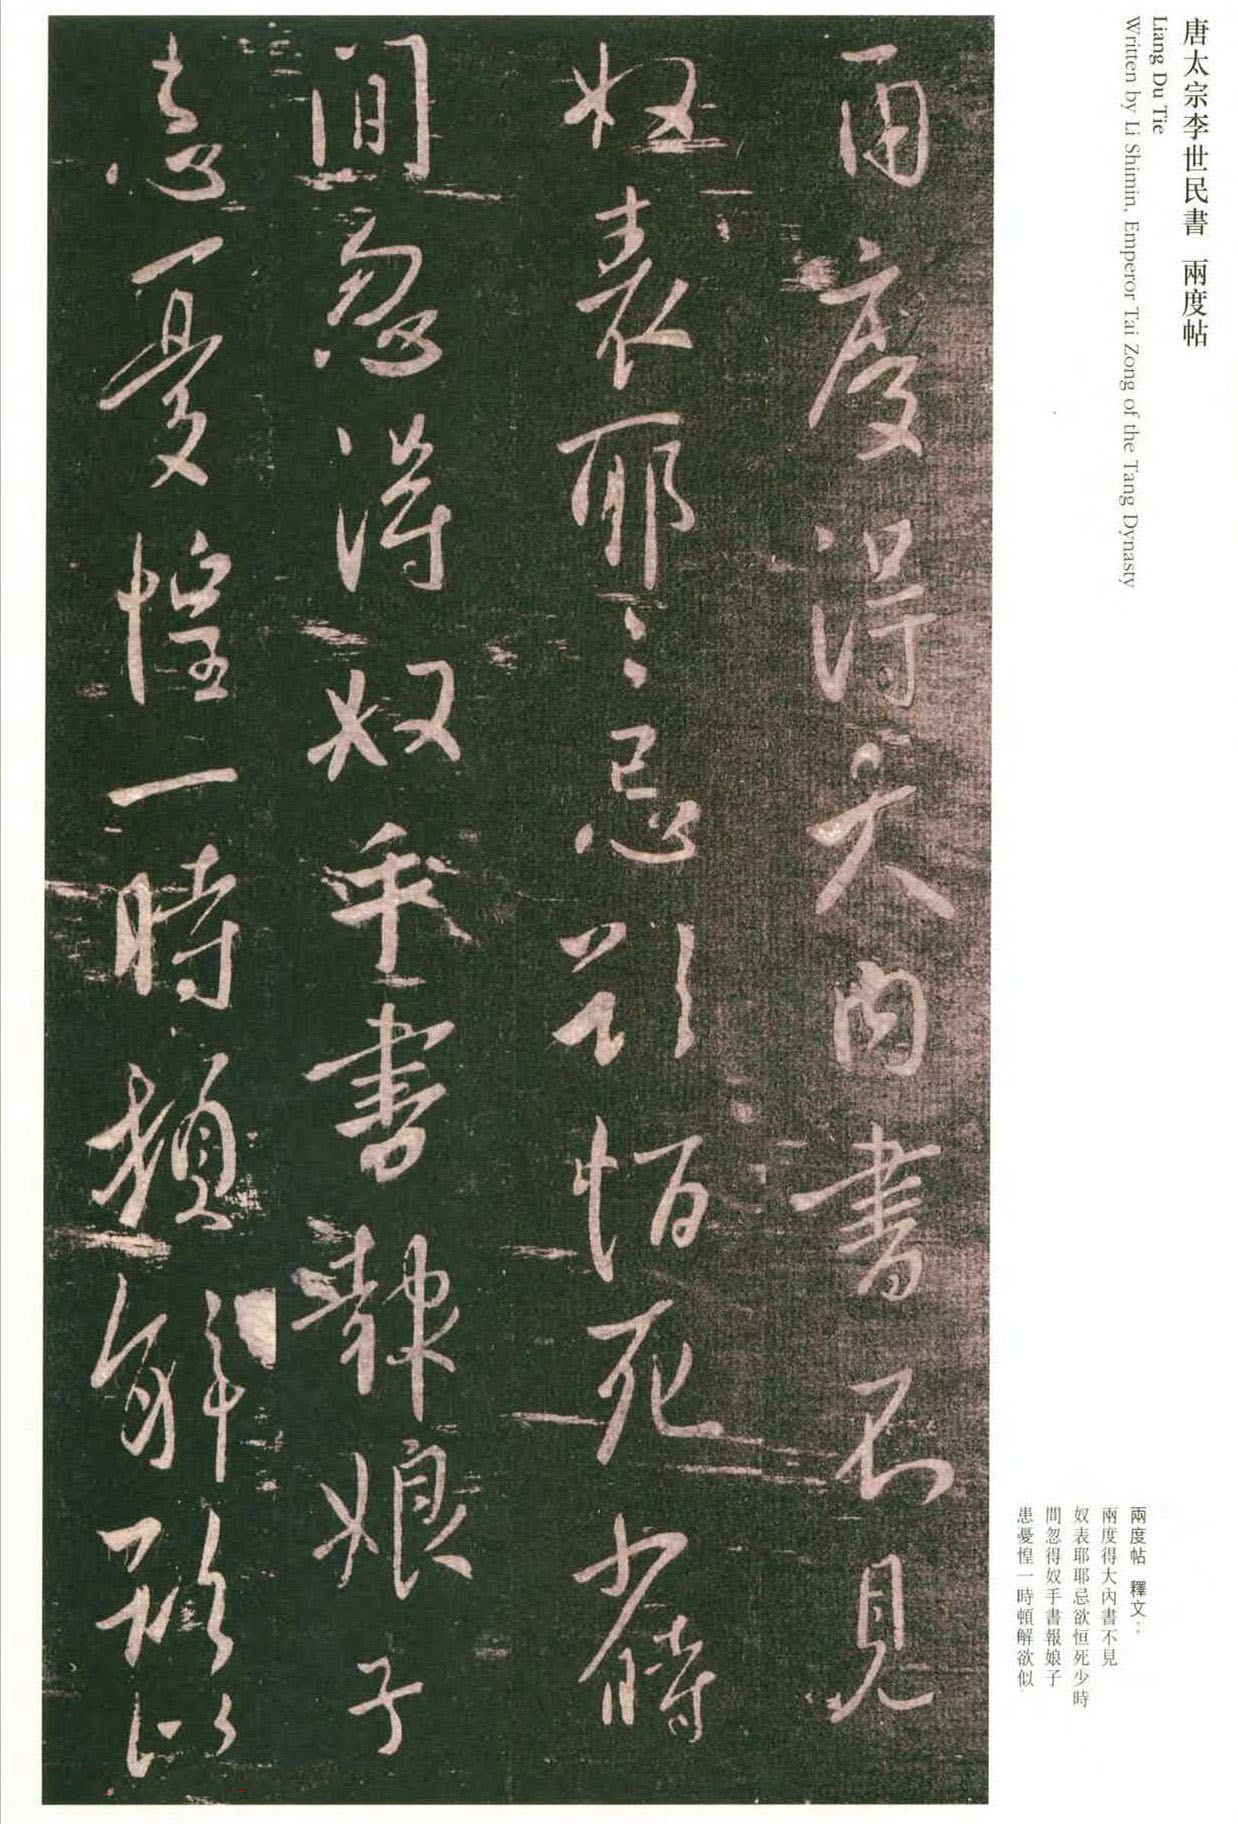 唐太宗李世民書 兩度帖
Liang Du Tie
Written by Li Shimin, Emperor Tai Zong of the Tang Dynasty
兩度得大內書不見
奴表耶耶忌欲恒死少時
間忽得奴手書報娘子
患憂惶一時頓解欲似
兩度帖 釋文：
兩度得大內書不見
奴表耶耶忌欲恒死少時
間忽得奴手書報娘子
患憂惶一時頓解欲似